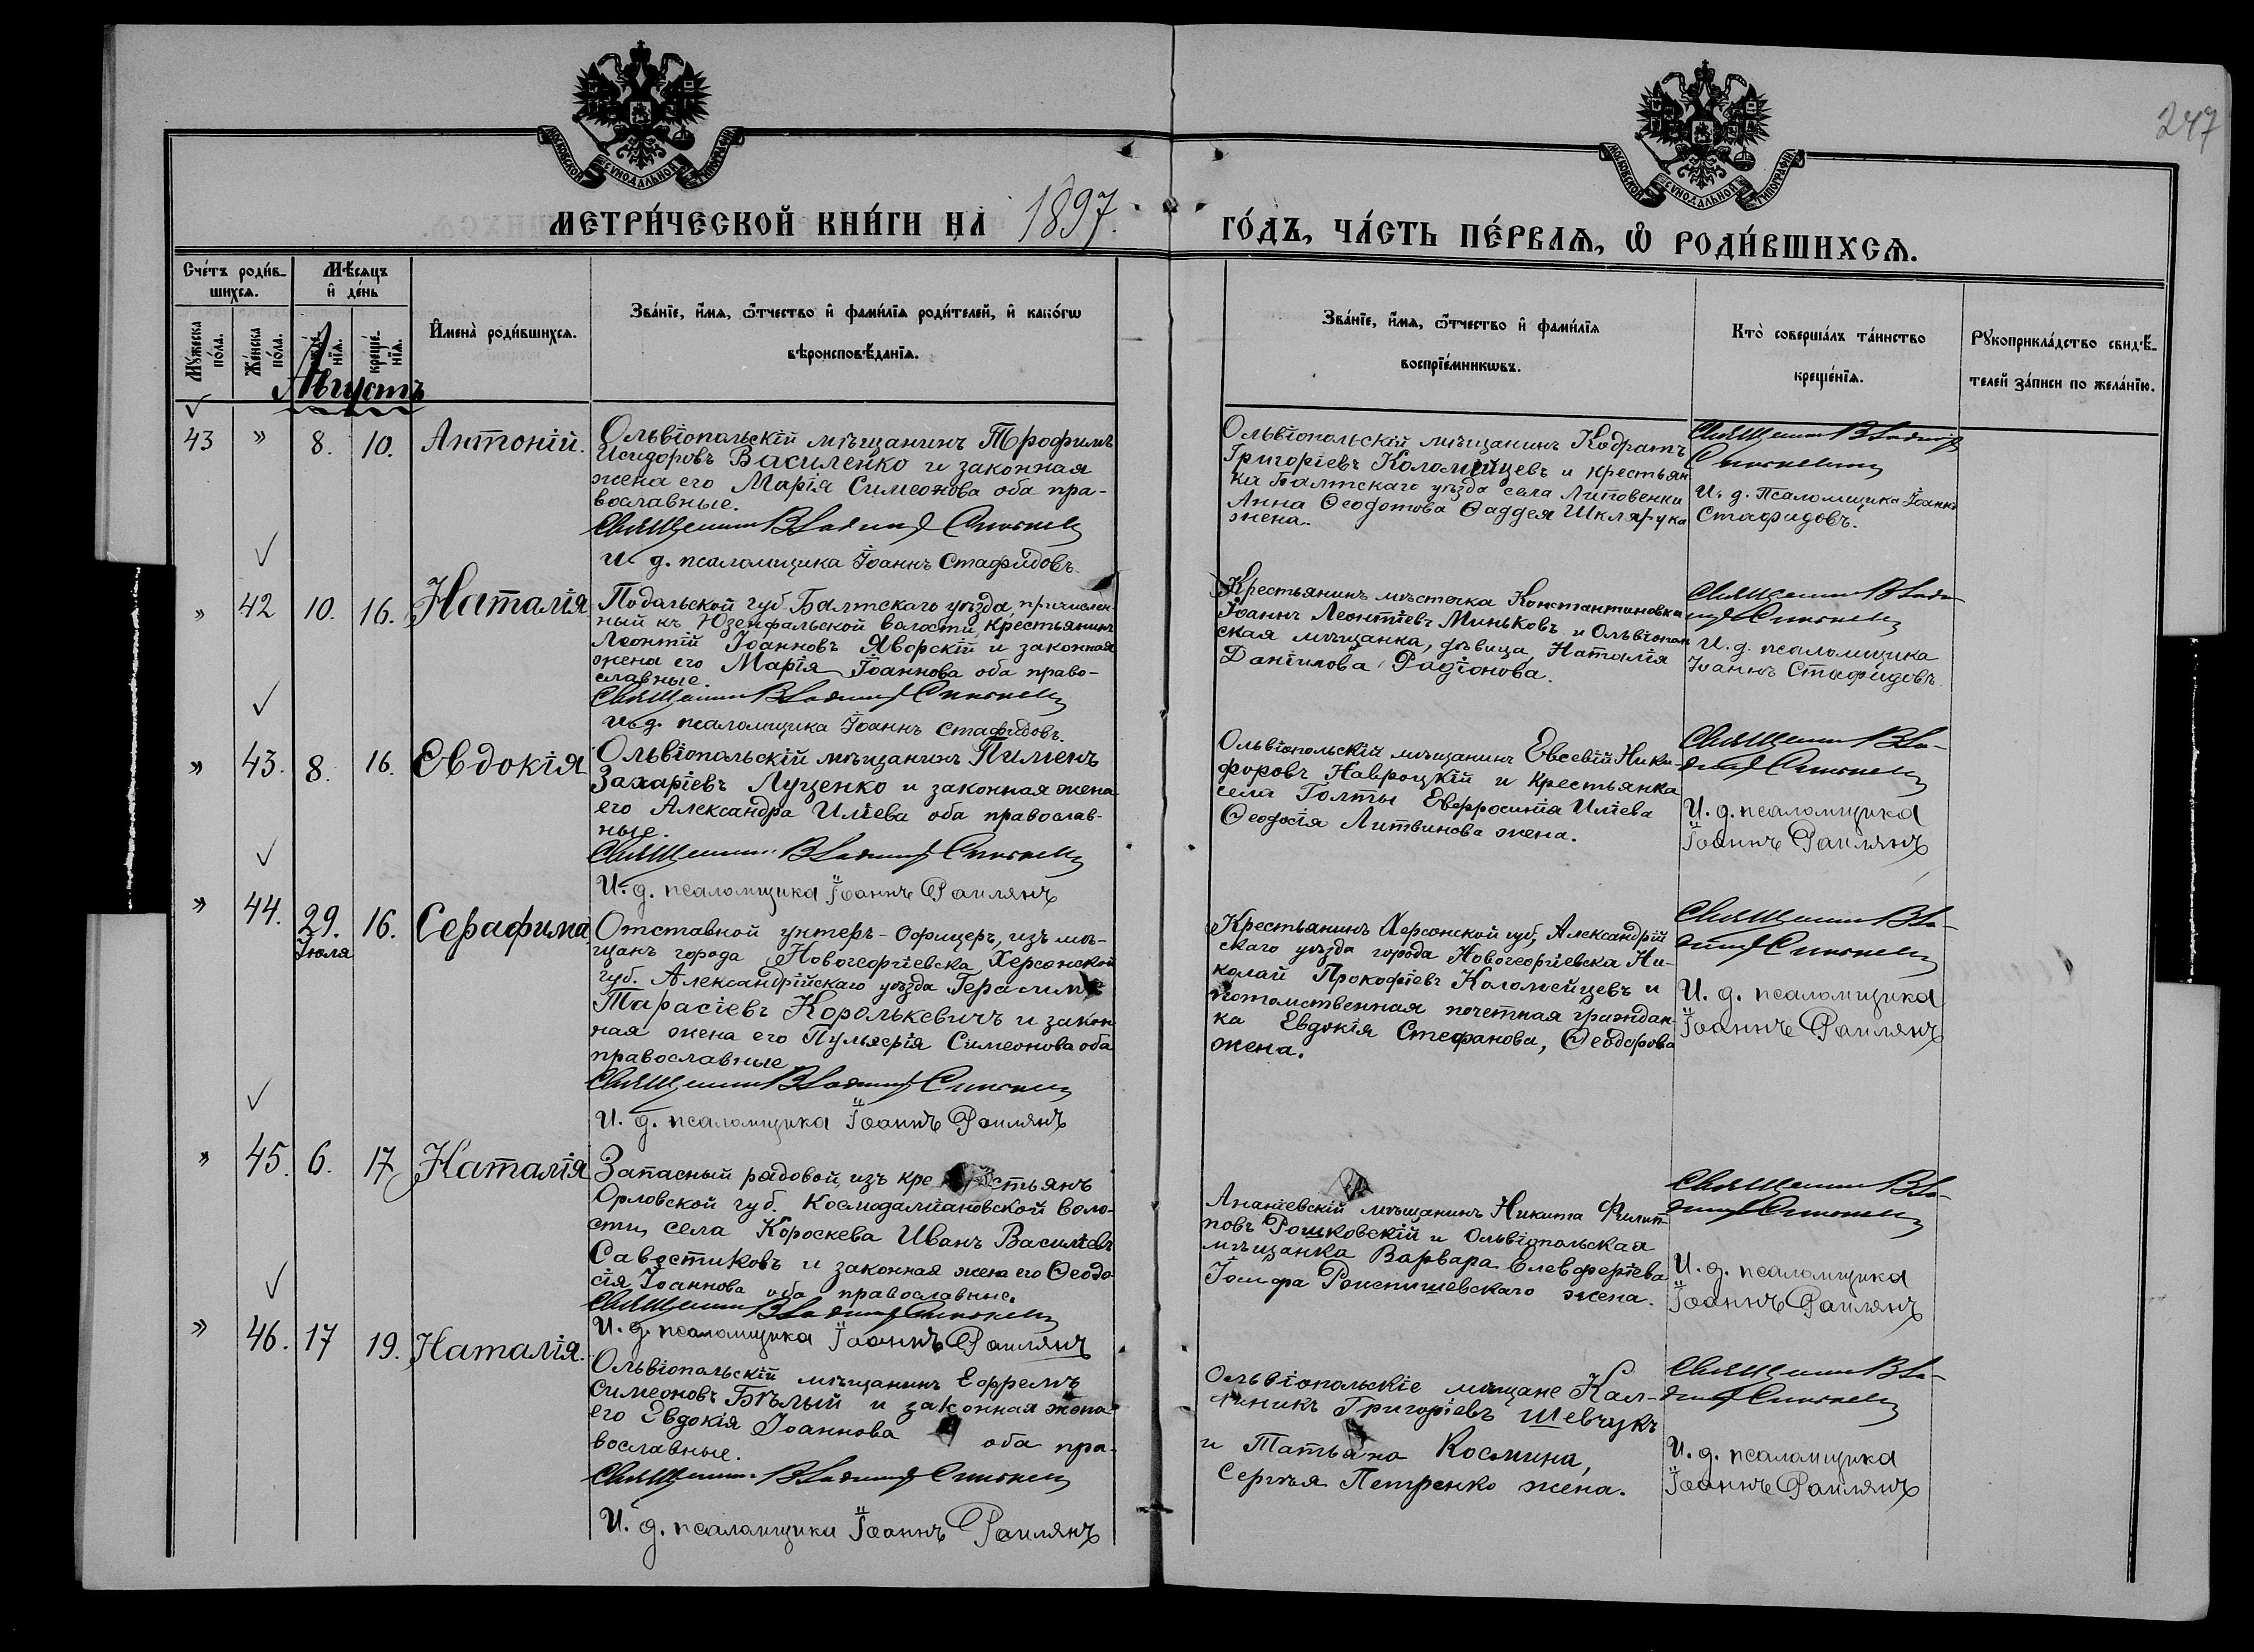 247
МОСКОВСКОЙ СѴНОДАЛЬНОЙ ТИПОГРАФІИ
МОСКОВСКОЙ СѴНОДАЛЬНОЙ ТИПОГРАФІИ
МЕТРИ́ЧЕСКОЙ КНИ́ГИ НА 1897.
ГО́ДЪ, ЧА́СТЬ ПЕ́РВАѦ, Ѡ҆ РОДИ́ВШИХСѦ.
Сче́тъ роди́в-
шихсѧ.
Мѣ́сѧцъ
и҆ де́нь
Мꙋ́жеска
по́ла.
Же́нска
по́ла.
нїѧ.
креще́-
нїѧ.
И҆мена̀ роди́вшихсѧ.
Зва́нїе, и҆́мѧ, ѻ҆́тчество и҆ фами́лїѧ роди́телей, и҆ како́гѡ
вѣроисповѣ́данїѧ.
Зва́нїе, и҆́мѧ, ѻ҆́тчество и҆ фами́лїѧ
воспрїе́мникѡвъ.
Кто̀ соверша́лъ та́инство
креще́нїѧ.
Рꙋкоприкла́дство свидѣ́-
телей за́писи по жела́нїю.
Августъ
43 » 8. 10. Антоній.
Ольвіопольскій мѣщанинъ Трофимъ
Исидоровъ Василенко и законная
жена его Марія Симеонова оба пра-
вославные.
Священникъ Владимір
И д. псаломщика Іоаннъ Стафидовъ
Ольвіопольскій мѣщанинъ Кодратъ
Григоріевъ Коломійцевъ и крестьян
ка Балтскаго уѣзда села Липовенки
Анна Ѳеодотова Ѳаддея Шклярука
жена.
Священникъ Владимір
И. д. Псаломщика Іоаннъ
Стафидовъ.
» 42 10. 16. Наталія
Подольской губ. Балтскаго уѣзда, причислен-
ный къ Юзенфальской волости, крестьянинъ
Леонтій Іоанновъ Яворскій и законная
жена его Марія Іоаннова оба право-
славные.
Священникъ Владимір
И. д. псаломщика Іоаннъ Стафидовъ.
Крестьянинъ мѣстечка Константиновка
Іоаннъ Леонтіевъ Миньковъ и Ольвіополь
ская мѣщанка, дѣвица, Наталія
Даніилова Радіонова.
Священникъ Влади
И. д. псаломщика
Іоаннъ Стафидовъ.
» 43. 8. 16. Евдокія
Ольвіопольскій мѣщанинъ Пименъ
Захаріевъ Луценко и законная жена
его Александра Иліева оба православ-
ные.
Священникъ Владимір
И. д. псаломщика Іоаннъ Раилянъ
Ольвіопольскій мѣщанинъ Евсевій Ники-
форовъ Навроцкій и крестьянка
села Голты Евфросинія Иліева
Ѳеодосія Литвинова жена.
Священникъ Вла-
И. д. псаломщика
Іоаннъ Раилянъ
» 44. 29. 16. Серафима
Іюля
Отставной унтеръ-офицеръ, изъ мѣ-
щанъ города Новогеоргіевска Херсонской
губ. Александрійскаго уѣзда Герасимъ
Тарасіевъ Королькевичъ и закон
ная жена его Пульхерія Симеонова оба
православные
Священникъ Владимір
И. д. псаломщика Іоаннъ Раилянъ
Крестьянинъ Херсонской губ, Александрій
скаго уѣзда города Новогеоргіевска Ни-
колай Прокофіевъ Коломейцевъ и
потомственная почетная граждан-
ка Евдокія Стефанова, Ѳеодорова
жена.
Священникъ Вла-
И. д. псаломщика
Іоаннъ Раилянъ
» 45. 6. 17 Наталія
Запасный рядовой, изъ кре стьянъ
Орловской губ. Космодаміановской воло-
сти, села Короскева Иванъ Василіевъ
Савостиковъ и законная жена его Ѳеодо-
сія Іоаннова оба православные.
Священникъ Владимір
И. д. псаломщика Іоаннъ Раилянъ
Ананіевскій мѣщанинъ Никита Филип-
повъ Рошковскій и Ольвіопольская
мѣщанка Варвара Елевферіева
Іосифа жена.
Священникъ Вла-
И. д. псаломщика
Іоаннъ Раилянъ
» 46. 17 19. Наталія.
Ольвіопольскій мѣщанинъ Ефремъ
Симеоновъ Бѣлый и законная жена
его Евдокія Іоаннова оба пра-
вославные.
Священникъ Владимір
И. д. псаломщика Іоаннъ Раилянъ
Ольвіопольскіе мѣщане Кал-
линикъ Григоріевъ Шевчукъ
и Татьяна Космина,
Сергѣя Петренко жена.
Священникъ Вла-
И. д. псаломщика
Іоаннъ Раилянъ